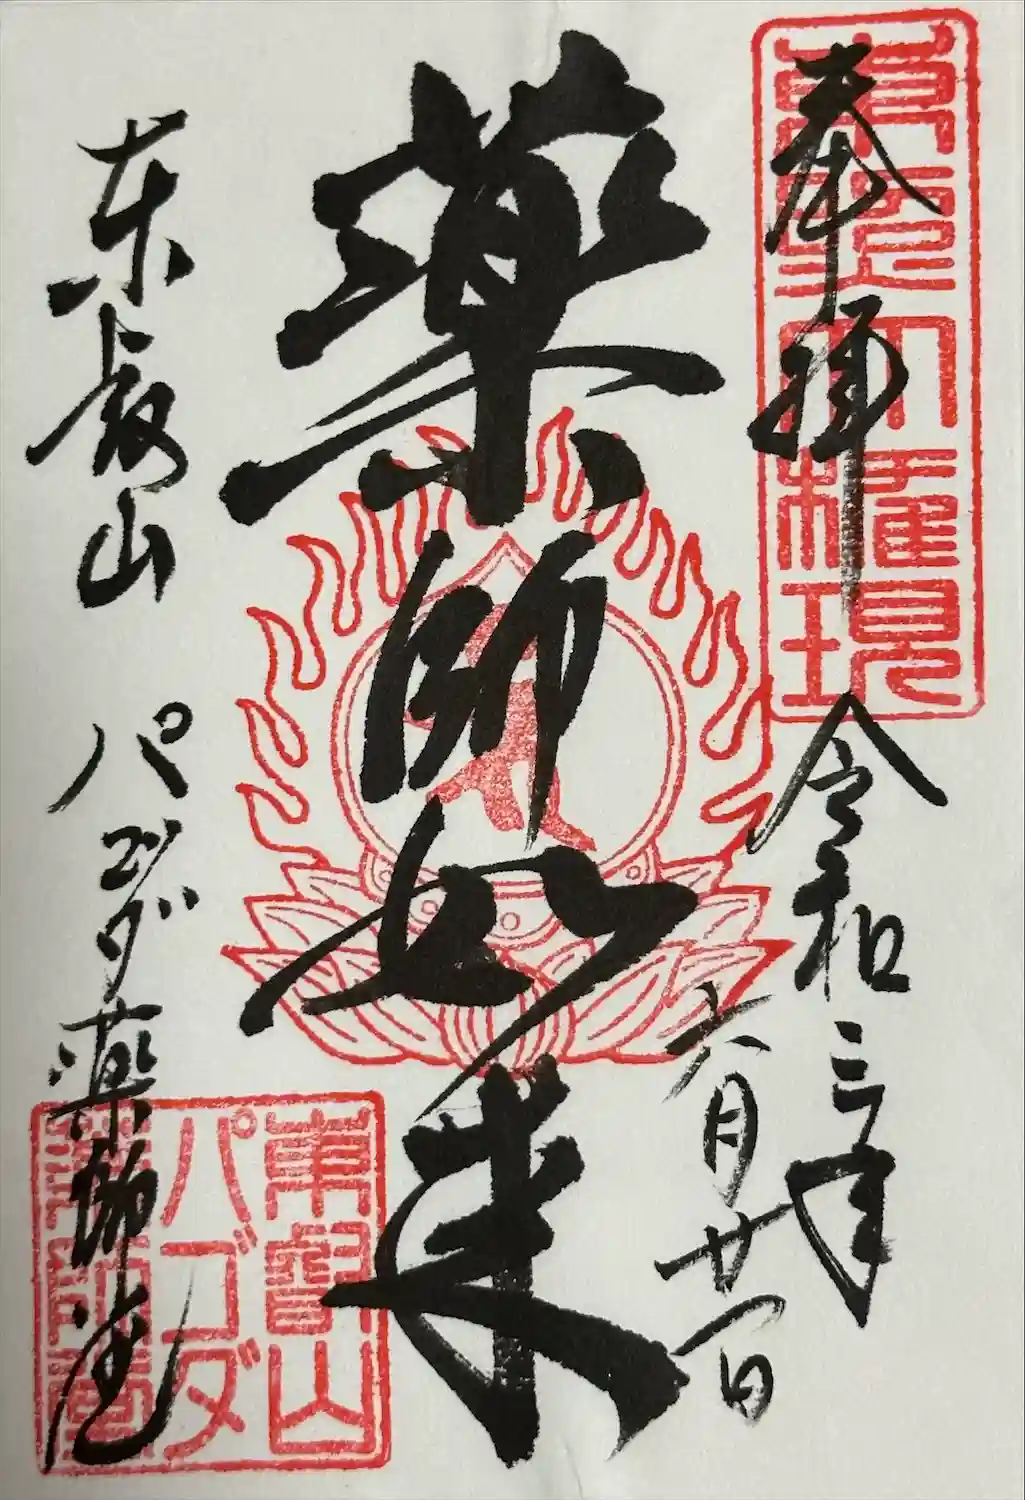 奉拝
東照大権現
令和三年
六月廿一日
薬師如来
東叡山 パゴダ薬師堂
東叡山
パゴダ
薬師堂